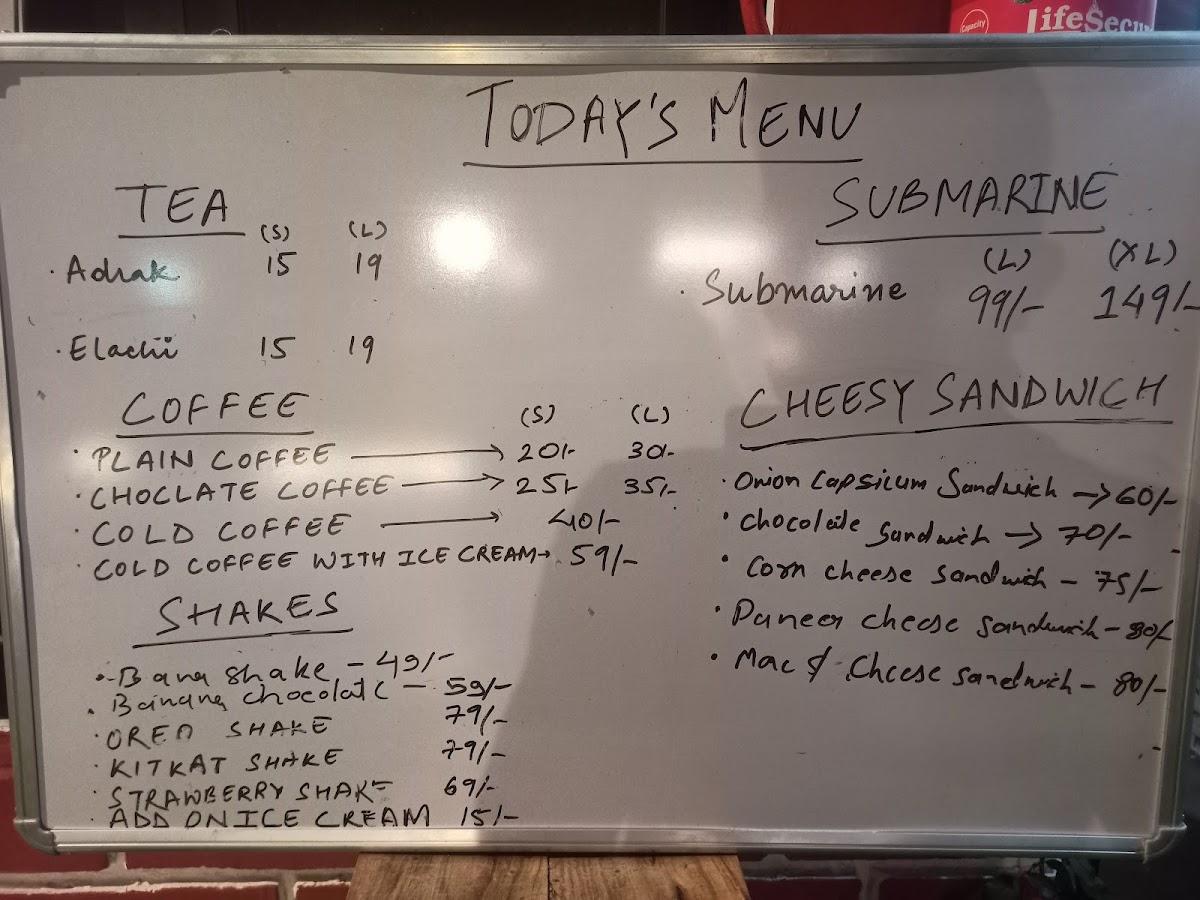 Capacity
lifeSecu
TODAY'S MENU
TEA
(S) (L)
· Adrak 15 19
· Elachi 15 19
COFFEE
(S) (L)
· PLAIN COFFEE → 20/- 30/-
· CHOCLATE COFFEE → 25/- 35/-
· COLD COFFEE → 40/-
· COLD COFFEE WITH ICE CREAM → 59/-
SHAKES
· Bana shake - 49/-
· Banana chocolate - 59/-
· OREO SHAKE 79/-
· KITKAT SHAKE 79/-
· STRAWBERRY SHAKE 69/-
· ADD ON ICE CREAM 15/-
SUBMARINE
(L) (XL)
· Submarine 99/- 149/-
CHEESY SANDWICH
· Onion Capsicum Sandwich → 60/-
· chocolate sandwich → 70/-
· Corn cheese sandwich - 75/-
· Paneer cheese sandwich - 80/-
· Mac & Cheese sandwich - 80/-